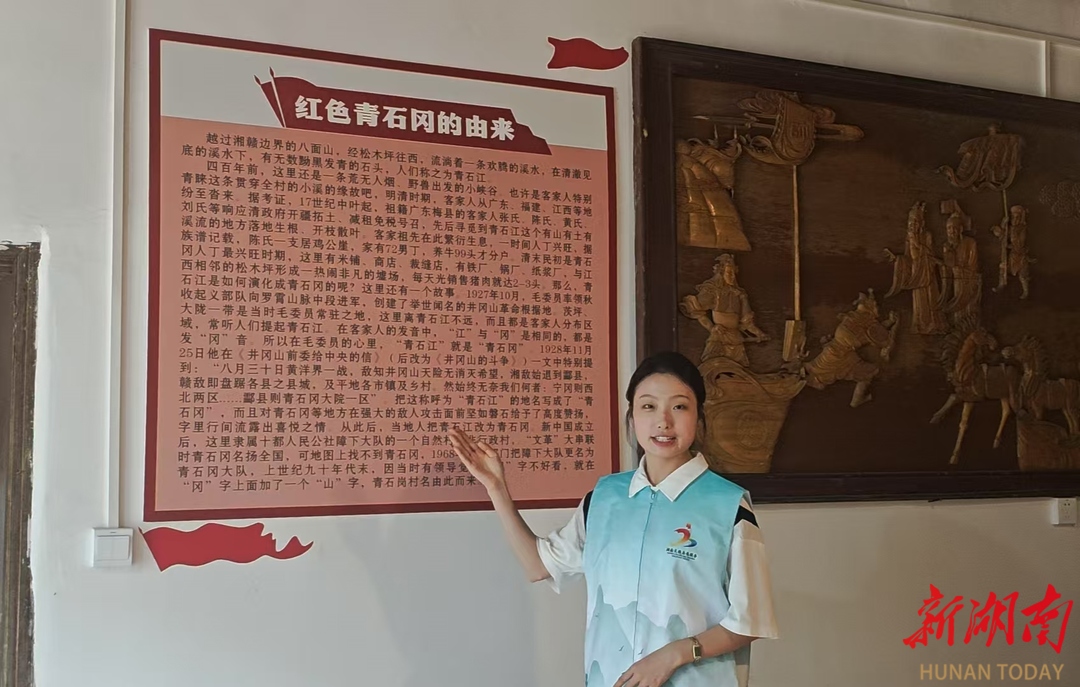 红色青石冈的由来
越过湘赣边界的八面山，经松木坪往西，流淌着一条欢腾的溪水，在清澈见
底的溪水下，有无数黝黑发青的石头，人们称之为青石江。
四百年前，这里还是一条荒无人烟、野兽出发的小峡谷。也许是客家人特别
青睐这条贯穿全村的小溪的缘故吧，明清时期，客家人从广东、福建、江西等地
纷至沓来。据考证，17世纪中叶起，祖籍广东梅县的客家人张氏、陈氏、黄氏、
刘氏等响应清政府开疆拓土、减租免税号召，先后寻觅到青石江这个有山有土有
溪流的地方落地生根、开枝散叶。客家祖先在此繁衍生息，一时间人丁兴旺，据
族谱记载，陈氏一支居鸡公崖，家有72男丁，养牛99头才分户。清末民初是青石
冈人丁最兴旺时期，这里有米铺、商店、裁缝店，有铁厂、锅厂、纸浆厂，与江
西相邻的松木坪形成一热闹非凡的墟场，每天光销售猪肉就达2-3头。那么，青
石江是如何演化成青石冈的呢？这里还有一个故事。1927年10月，毛委员率领秋
收起义部队向罗霄山脉中段进军，创建了举世闻名的井冈山革命根据地。茨坪、
大陇一带是当时毛委员常驻之地，这里离青石江不远，而且都是客家人分布区
域，常听人们提起青石江。在客家人的发音中，“江”与“冈”是相同的，都是
发“冈”音。所以在毛委员的心里，“青石江”就是“青石冈”。1928年11月
25日他在《井冈山前委给中央的信》（后改为《井冈山的斗争》）一文中特别提
到：“八月三十日黄洋界一战，敌知井冈山天险无消灭希望，湘敌始退到酃县，
赣敌即盘踞各县之县城，及平地各市镇及乡村。然始终无奈我们何者：宁冈则西
北两区……酃县则青石冈大院一区”。把这称呼为“青石江”的地名写成了“青石
石冈”，而且对青石冈等地方在强大的敌人攻击面前坚如磐石给予了高度赞扬，
字里行间流露出喜悦之情。从此后，当地人把青石江改为青石冈。新中国成立
后，这里隶属十都人民公社障下大队的一个自然村 行政村，“文革”大串联
时青石冈名扬全国，可地图上找不到青石冈，1968 门把障下大队更名为
青石冈大队，上世纪九十年代末，因当时有领导 字不好看，就在
“冈”字上面加了一个“山”字，青石岗村名由此而来
新湖南
HUNAN TODAY